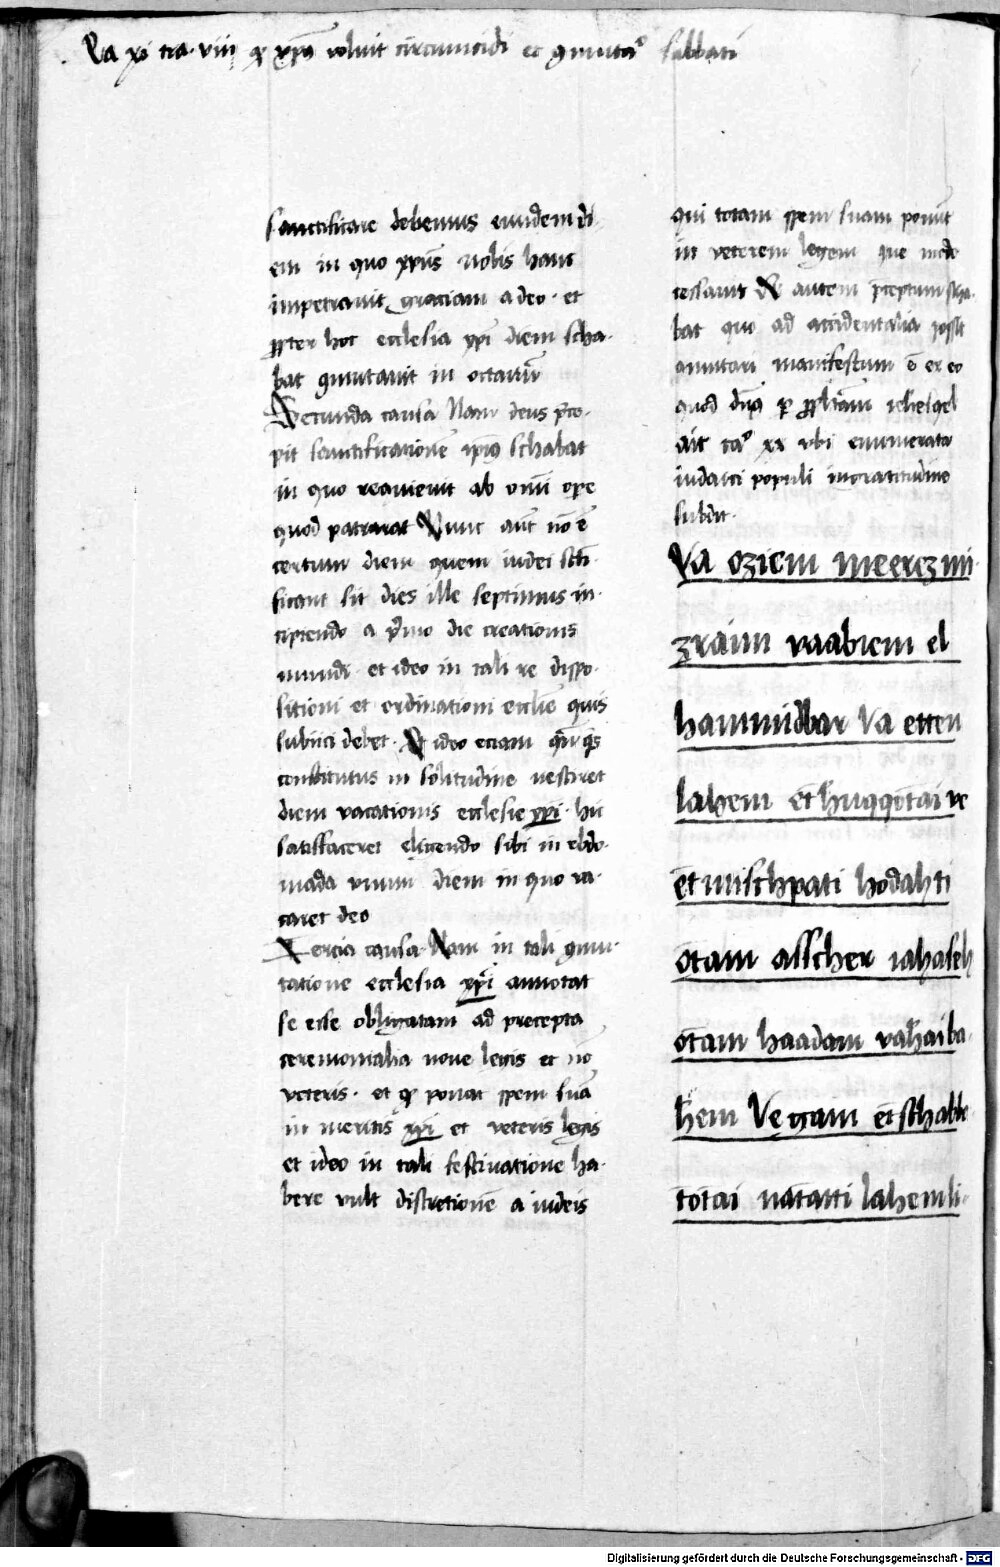 Ra xi tra viii qꝫ xpūs voluit circumcidi et ꝯmutaͦ sabbati
sanctificare debemus eiusdem di
em in quo xpūs nobis hanc
impetrauit graciam a deo · et
ꝓpter hoc ecclesia xpī diem scha
bat ꝯmutauit in octauū
Secunda causa Nam deus p̄ce
pit sanctificationē ipiꝰ schabat
in quo requieuit ab omī ope
quod patrarat Nunc aūt nō ē
certum diem quem iudei scti
ficant sit dies ille septimus in
cipiendo a p̄mo die creationis
mundi · et ideo in tali re dispo
sitioni et ordinationi ecclīe quis
subiici debet · Et ideo eciam qn̄ qͥs
constitutus in solitudine nesciret
diem vacationis ecclesie xpī · hic
satisfaceret eligendo sibi in ebdo
mada vnum diem in quo va
caret deo
Tercia causa Nam in tali ꝯmu
tatione ecclesia xpī annotat
se esse obligatam ad precepta
ceremonialia noue legis et nō
veteris · et qꝫ ponat spem suā
in meritis xpī et veteris legis
et ideo in tali festiuatione ha
bere vult discretionē a iudeis
qui totam spem suam ponūt
in veterem legem que modo
cessauit autem p̄ceptum scha
bat quo ad accidentalia possit
ꝯmutari manifestum ē ex eo
quod dn̄s ꝑ ꝓphetam iehesqel
ait caͦ xx vbi enumerata
iudaici populi ingratitudine
subdit
Va oziem meerezmi
zraim vaabiem el
hammidbar Va etten
lahem et huqqotai ve
et mischpati hodahti
otam asscher iahaseh
otam haadam vahaiba
hem Vegam et schabbe
totai natatti lahem li
Digitalisierung gefördert durch die Deutsche Forschungsgemeinschaft - DFG